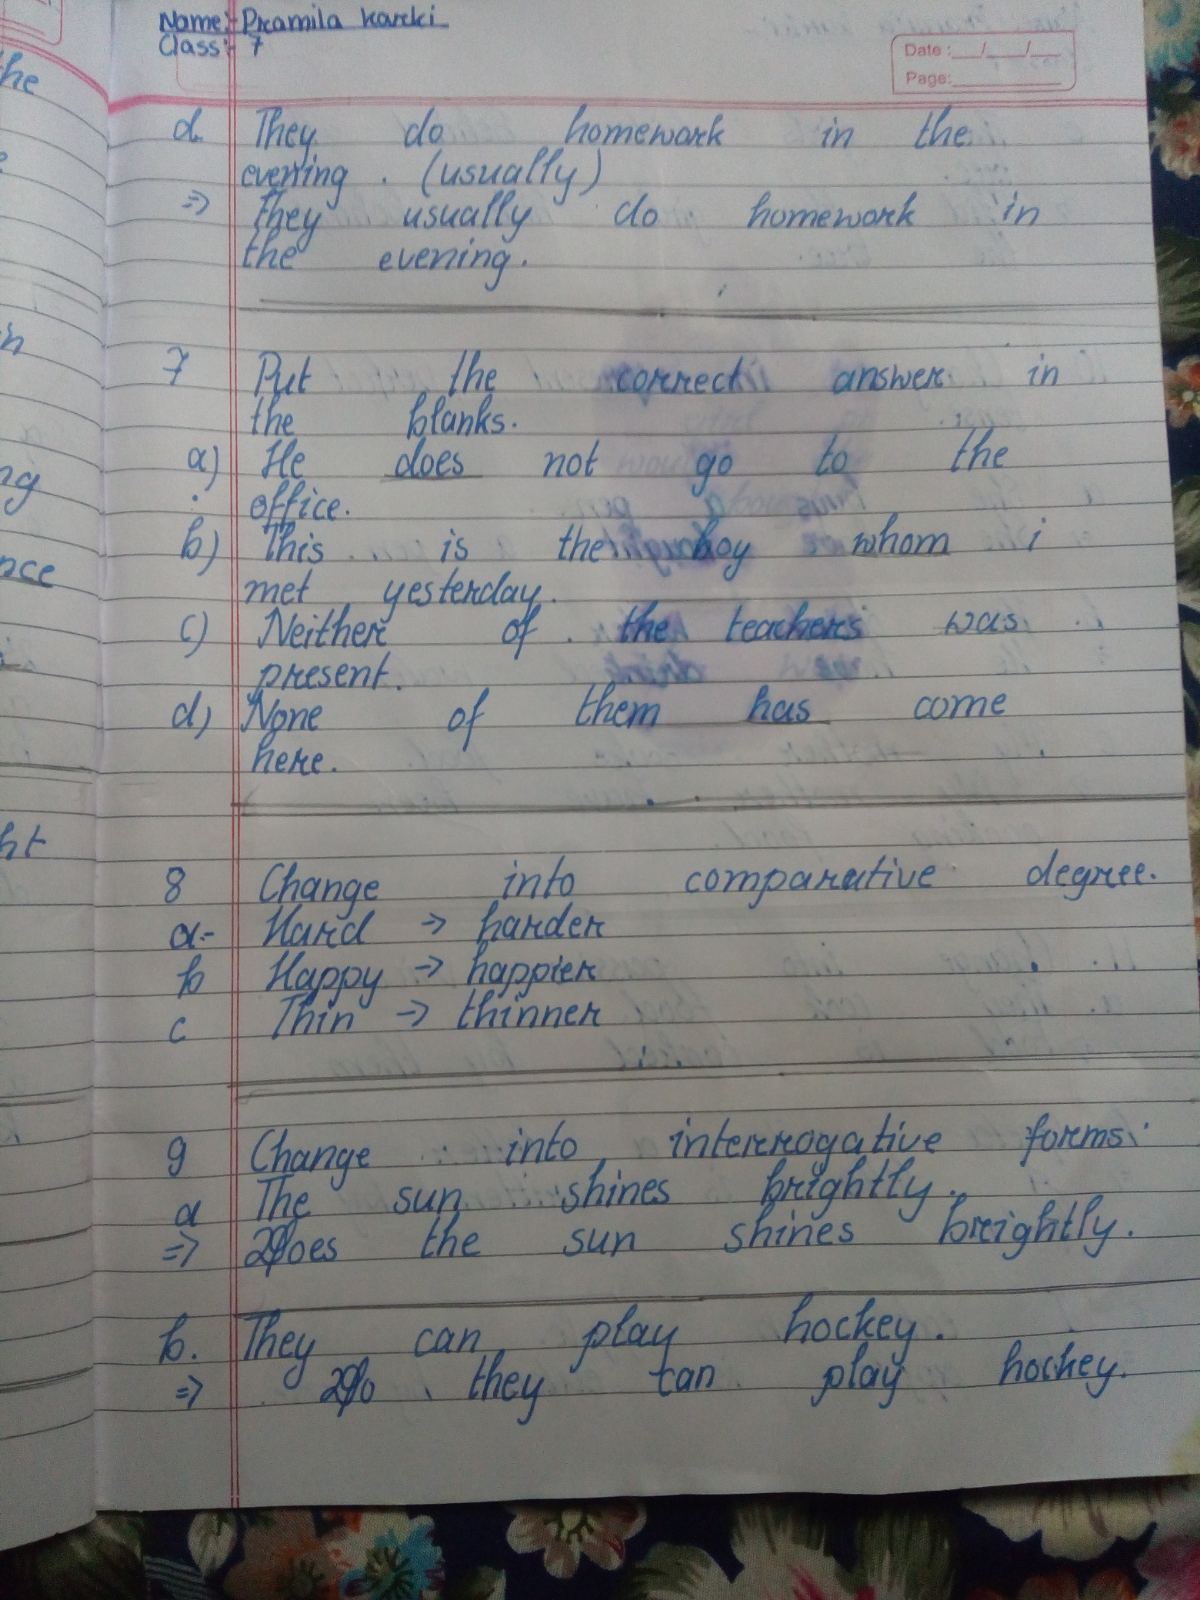 Name:- Pramila karki
Class:- 7
Date :__/__/__
Page:
d. They do homework in the
evening . (usually)
=> They usually do homework in
the evening.
7 Put the correct answer in
the blanks.
a) He does not go to the
office.
b) This is the boy whom i
met yesterday.
c) Neither of the teachers was
present.
d) None of them has come
here.
8 Change into comparative degree.
a- Hard -> harder
b Happy -> happier
c Thin -> thinner
9 Change into interrogative forms.
a The sun shines brightly.
=> Does the sun shines brightly.
b. They can play hockey.
=> Do they can play hockey.
he
n
ng
nce
ht